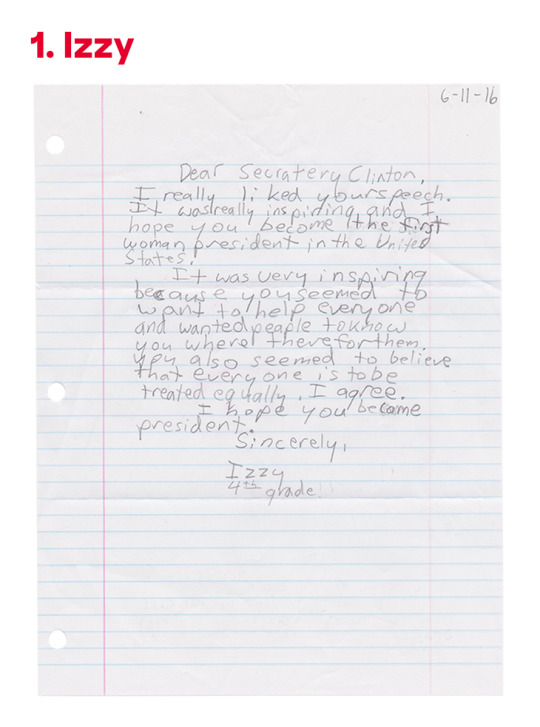 1. Izzy
6-11-16
Dear Secratery Clinton,
I really liked your speech.
It was really inspirting and I
hope you become the first
woman president in the United
States.
It was very inspiring
because you seemed to
want to help everyone
and wanted people to know
you wherel there for them.
you also seemed to believe
that everyone is to be
treated equally. I agree.
I hope you became
president.
Sincerely,
Izzy
4th grade